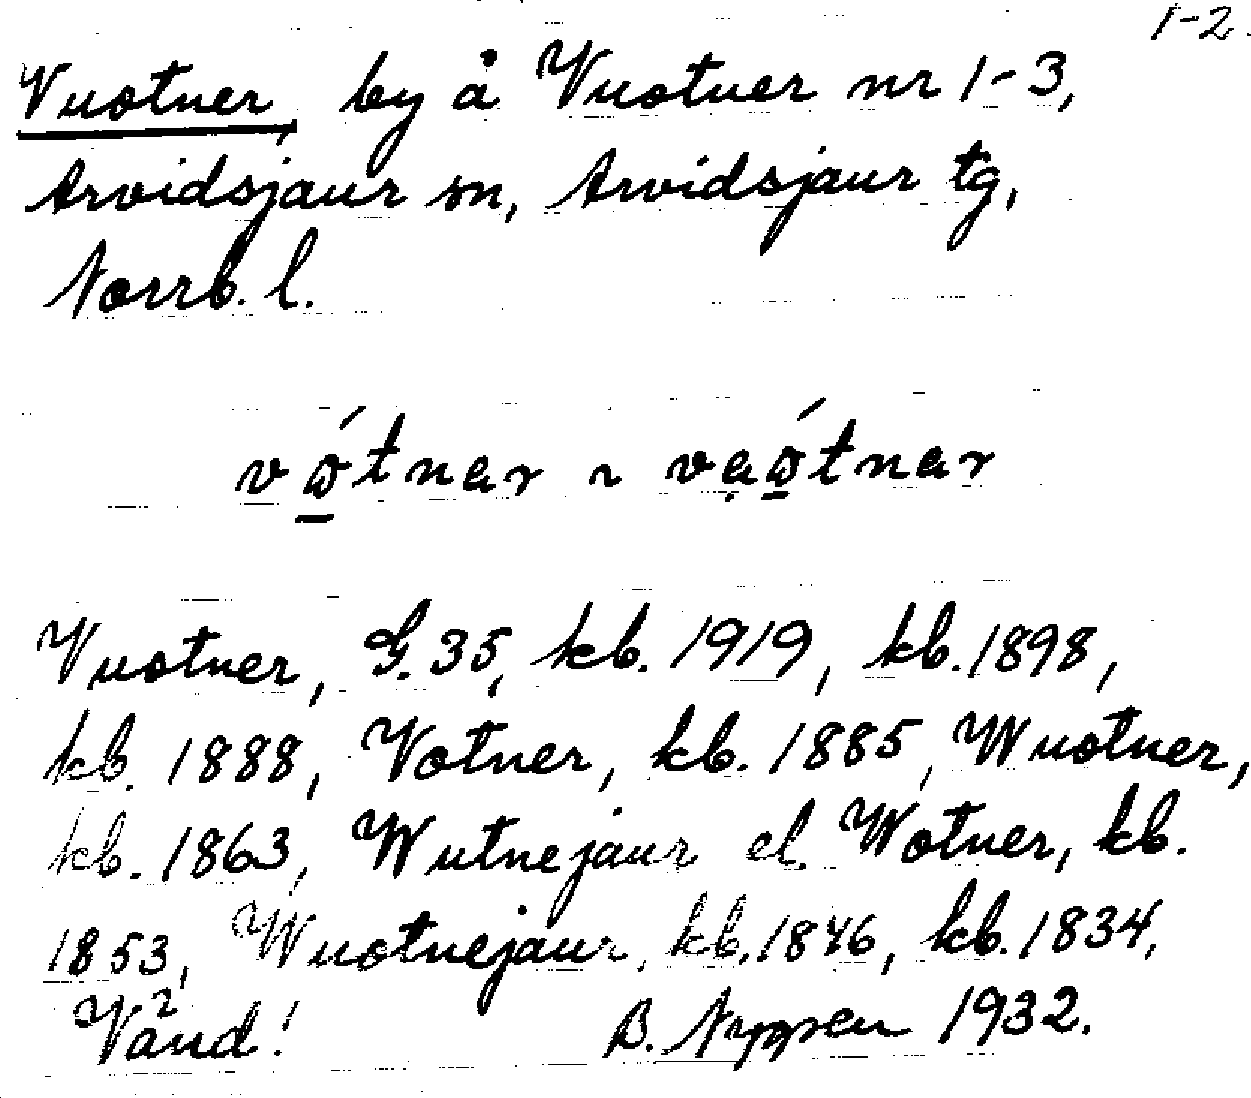 1-2.
Vuotner, by å Vuotner nr 1-3,
Arvidsjaur sn, Arvidsjaur tg,
Norrb. l.
vó̲tnar ~ vạó̲tnar
Vuotner, G. 35, kb. 1919, kb. 1898,
kb. 1888, Votner, kb. 1885, Wuotner,
kb. 1863, Wutnejaur el. Wotner, kb.
1853, Wuotnejaur, kb. 1846, kb. 1834,
Vänd! B. Nyppen 1932.